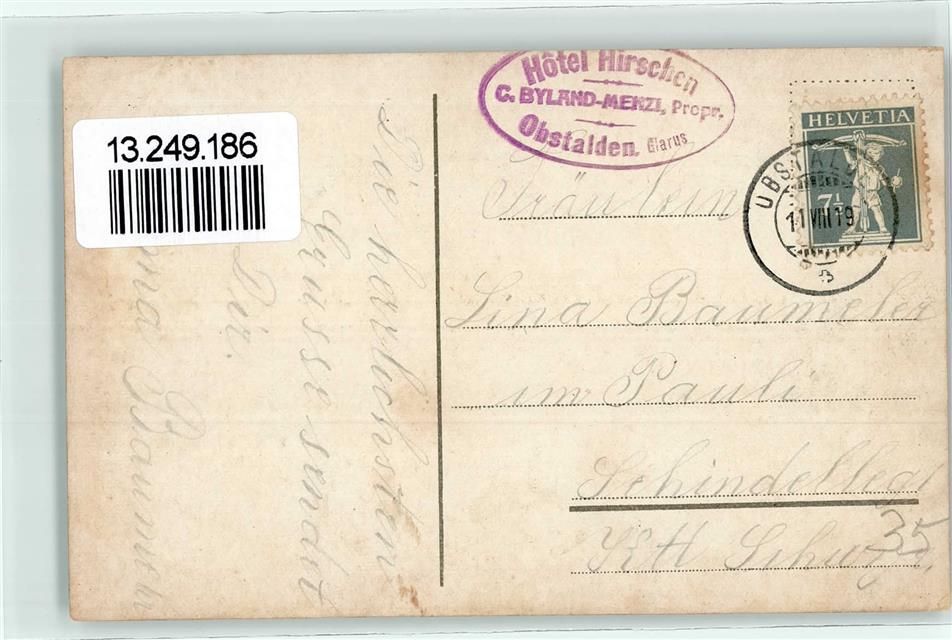 13.249.186
Hôtel Hirschen
C. BYLAND-MENZI, Propr.
Obstalden. Glarus
HELVETIA
7½
OBSTALDEN
11 VIII 19
Die herzlichsten
Grüsse sendet
Dir.
Fräulein
Lina Baumeler
im Pauli
Schindellegi
Ktt Schwyz
35